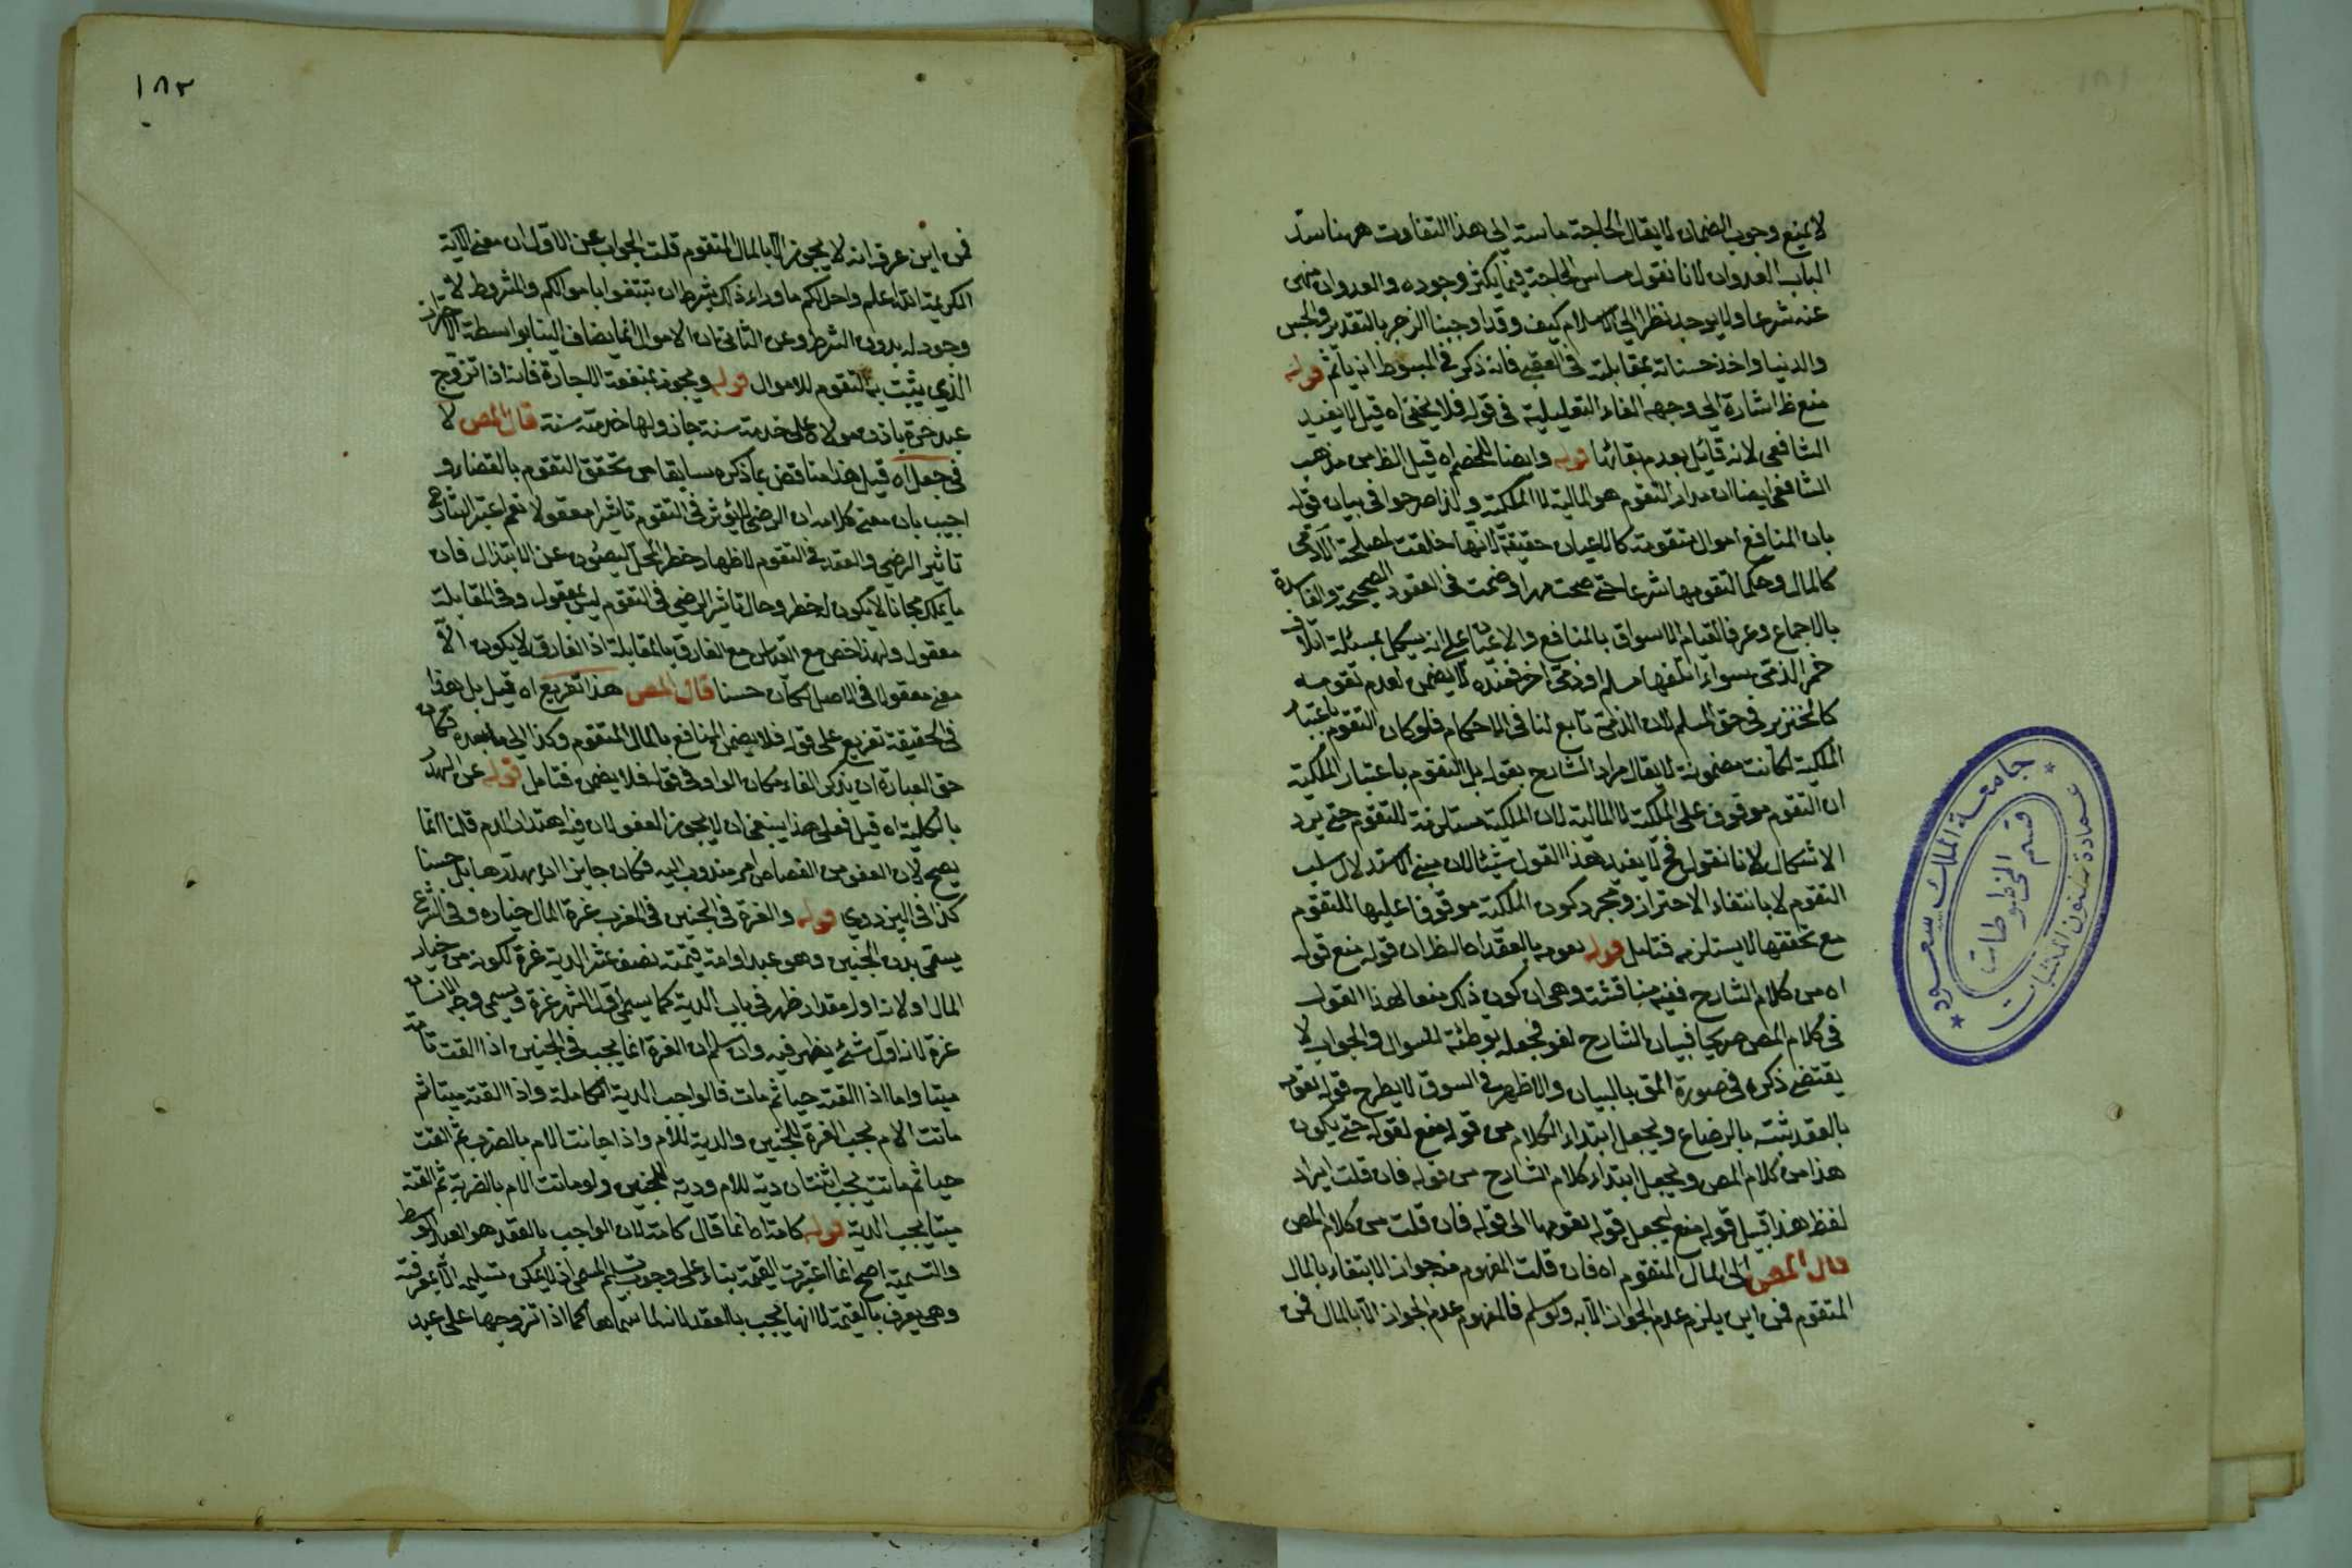 لا يمنع وجوب الضمان لا يقال الحاجة ماسة الى هذا التفاوت ههنا سدّ
الباب العدوان لانا نقول مساس الحاجة فيما يكثر وجوده والعدوان منهى
عنه شرعا ولا يوجد نظرا الى الاسلام كيف وقد اوجبنا الزجر بالتعذير والحبس
والدنيا واخذ حسناته بمقابلته فى العقبى فانه ذكر فى المبسوط انه يأثم قوله
منع ظ اشارة الى وجهه الفاء التعليلية فى قوله فلا يخفى اه قيل لا يفيد
الشافعى لانه قائل بعدم بقائها قوله وايضا للخصم اه قيل الظ من مذهب
الشافعى ايضا ان مدار التقوم هو المالية لا الملكية ولذا صرحوا فى بيان قوله
بان المنافع اموال متقومة كالاعيان حقيقة لانها خلقت لمصلحة الآدمى
كالمال وحكما لتقومها شرعا حتى صحت مهرا وضمنت فى العقود الصحيحة والفاسدة
بالاجماع وعرفا لقيام الاسواق بالمنافع والاعيان على انه يشكل بمسئلة اتلاف
خمر الذمى سواء اتلفها مسلم او ذمى اخر فعنده لا يضمن لعدم تقومه
كالخنزير فى حق المسلم لان الذمى تابع لنا فى الاحكام فلو كان التقوم باعتبار
الملكية لكانت مضمونة لا يقال مراد الشارح بقوله بل التقوم باعتبار الملكية
ان التقوم موقوف على الملكية لا المالية لان الملكية مستلزمة للتقوم حتى يرد
الاشكال لانا نقول فح لا يفيد هذا القول شيئا لان مبنى الاستدلال سلب
التقوم لا بانتفاء الاحتراز ومجرد كون الملكية موقوفا عليها للتقوم
مع تحققها لا يستلزمه فتامل قوله تقومه بالعقد اه الظ ان قوله منع قوله
اه من كلام الشارح ففيه مناقشة وهى ان كون ذلك منعا لهذا القول
فى كلام المص صريحا فبيان الشارح لغو فجعله توطئة للسؤال والجواب لا
يقتضى ذكره فى صورة المق بالبيان والاظهر فى السوق لا يطرح قوله تقومه
بالعقد يثبت بالرضاع ويجعل ابتداء الكلام من قوله منع لقوله حتى يكون
هذا من كلام المص ويجعل ابتداء كلام الشارح من قوله فان قلت ايراد
لفظ هذا قبيل قوله منع ليجعل قوله تقومها الى قوله فان قلت من كلام المص
قال المص الى المال المتقوم اه فان قلت المفهوم منه جواز الابتغاء بالمال
المتقوم فمن اين يلزم عدم الجواز الا به ولو سلم فالمفهوم عدم الجواز الا بالمال فمن
١٨٢
فمن اين عرف انه لا يجوز الا بالمال المتقوم قلت الجواب عن الاول ان معنى الآية
الكريمة الله اعلم واحل لكم ما وراء ذلك بشرط ان تبتغوا باموالكم والمشروط لا
وجود له بدون الشرط وعن الثانى ان الاموال انما يضاف الينا بواسطة الاحراز
الذى يثبت به التقوم للاموال قوله ويجوز بمنفعة الاجارة فانه اذا تزوج
عبد حرة باذن مولاه على خدمته سنة جاز ولها خدمته سنة قال المص لا
فى جعل اه قيل هذا مناقض بما ذكره سابقا من تحقق التقوم بالقضاء و
اجيب بان معنى كلامه ان الرضى لا يؤثر فى التقوم تاثيرا معقولا نعم اعتبر الشارع
تاثير الرضى والعقد فى التقوم لاظهار خطر المحل ليصون عن الابتذال فان
ما يملك مجانا لا يكون له خطر وحال تاثير الرضى فى التقوم ليس بمعقول وفى المقابلة
معقول ولهذا خص مع القياس مع الفارق بالمقابلة اذ الفارق لا يكون الا
معنى معقولا فى الاصل لكان حسنا قال المص هذا تفريع اه قيل بل هذا
فى الحقيقة تفريع على قوله فلا يضمن المنافع بالمال المتقوم وكذا الى ما بعده فكان
حق العبارة ان يذكر الفاء مكان الواو فى قوله فلا يضمن فتامل قوله عن الهدر
بالكلية اه قيل فعلى هذا ينبغى ان لا يجوز العفو لان فيه اهتدار الدم قلنا انما
يصح لان العفو من القصاص امر مندوب اليه فكان جايزا ان يهدرها بل حسنا
كذا فى البزدوي قوله والغرة فى الجنين فى المغرب غرة المال خياره وفى الشرع
يسمى بدل الجنين وهو عبد او امة قيمته نصف عشر الدية غرة لكونه من خيار
المال او لانه اول مقدار ظهر فى باب الدية كما يسمى اول الشهر غرة ويسمى وجه الانسان
غرة لانه اول شئ يظهر فيه وان سلم ان الغرة انما يجب فى الجنين اذا القت تامة
ميتا واما اذا القته حيا ثم مات فالواجب الدية الكاملة واذا القته ميتا ثم
ماتت الام يجب الغرة للجنين والدية للام واذا ماتت الام بالضرب ثم القت
حيا ثم مات يجب اثنتان دية للام ودية للجنين ولو ماتت الام بالضربة ثم القته
ميتا يجب الدية قوله كامة اه انما قال كامة لان الواجب بالعقد هو العبد الوسط
والتسمية اصح انما اعتبرت القيمة بناء على وجوب تسليم المسمى اذ لا يمكن تسليمه الا بمعرفته
وهى يعرف بالقيمة لا انها يجب بالعقد لانه ما سماها كما اذا تزوجها على عبد
جامعة الملك سعود
عمادة شئون المكتبات
قسم المخطوطات